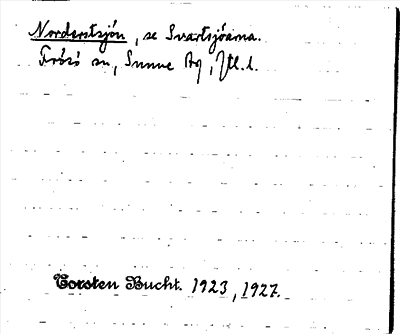 Norderstsjön, se Svartsjöarna.
Frösö sn, Sunne tg, Jtl. l.
Torsten Bucht. 1923, 1927.